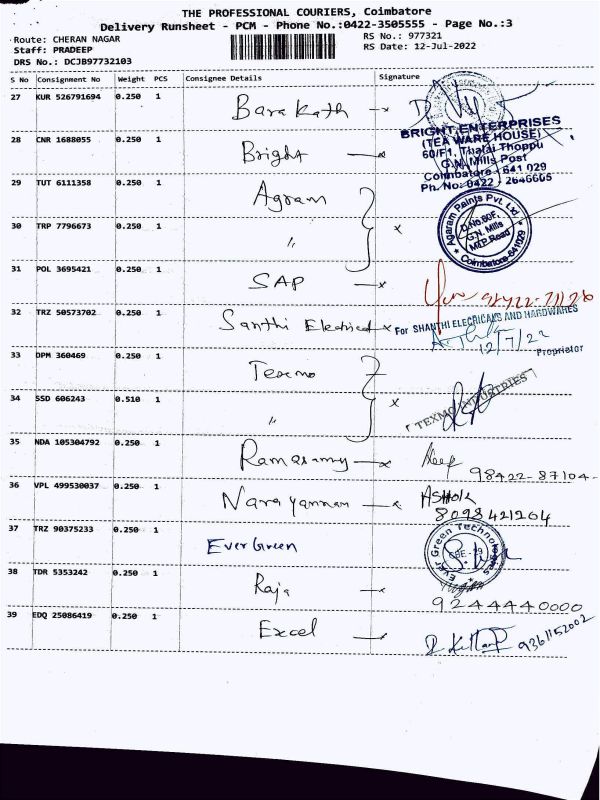 THE PROFESSIONAL COURIERS, Coimbatore
Delivery Runsheet - PCM - Phone No.:0422-3505555 - Page No.:3
Route: CHERAN NAGAR
RS No.: 977321
Staff: PRADEEP
RS Date: 12-Jul-2022
DRS No.: DCJB97732103
S No Consignment No Weight PCS Consignee Details Signature
27 KUR 526791694 0.250 1 Barakath
28 CNR 1688055 0.250 1 Bright
BRIGHT ENTERPRISES
(TEA WARE HOUSE)
60/F1, Thalai Thoppu
G.N. Mills Post
Coimbatore - 641 029
Ph. No: 0422 - 2646605
29 TUT 6111358 0.250 1 Agram
30 TRP 7796673 0.250 1 "
Agaram Paints Pvt. Ltd.
D.No.60F,
G.N. Mills
M.T.P. Road
Coimbatore-641029
31 POL 3695421 0.250 1 SAP
32 TRZ 50573702 0.250 1 Santhi Electrical
For SHANTHI ELECRICALS AND HARDWARES
12/7/22
Proprietor
33 DPM 360469 0.250 1 Texmo
34 SSD 606243 0.510 1 "
TEXMO INDUSTRIES
35 NDA 105304792 0.250 1 Ramasamy
98422-87104-
36 VPL 499530037 0.250 1 Narayannan ASHOK
8098421204
37 TRZ 90375233 0.250 1 EverGreen
Ever Green Technologies
CBE - 29
38 TDR 5353242 0.250 1 Raja
9244440000
39 EDQ 25086419 0.250 1 Excel
9361152002